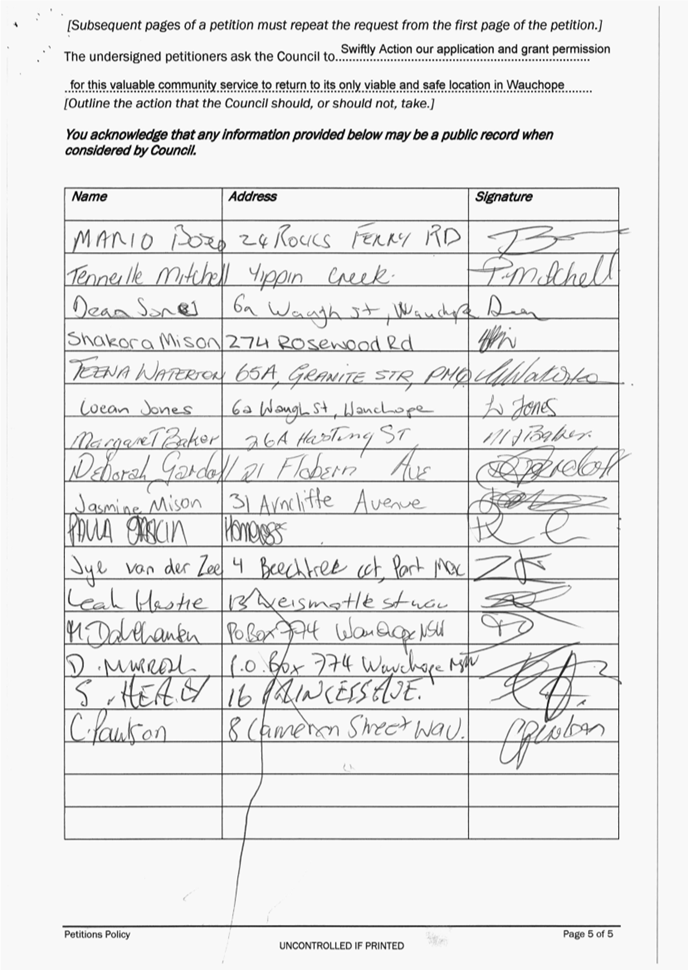 [Subsequent pages of a petition must repeat the request from the first page of the petition.]
The undersigned petitioners ask the Council to Swiftly Action our application and grant permission
for this valuable community service to return to its only viable and safe location in Wauchope
[Outline the action that the Council should, or should not, take.]
You acknowledge that any information provided below may be a public record when
considered by Council.
Name Address Signature
MARIO 24 ROCKS FERRY RD
Tenneille Mitchell Yippin Creek. T. Mitchell
Dean Jones 6a Waugh st, Wauchope Dean
Shakora Mison 274 Rosewood Rd
TEENA WATERTON 65A, GRANITE STR, PMQ
Loean Jones 6a Waugh St, Wauchope L Jones
Margaret Baker 26A Hasting ST M J Baker.
Deborah 21 Flobern Ave
Jasmine Mison 31 Ayncliffe Avenue
PAULA
Jye van der Zee 4 Beechtree cct, Port Mac
Leah 13
PO Box 774 Wauchope NSW
D. P.O. Box 774 Wauchope NSW
S. HEALY 16 PRINCESS AVE.
C. Paulson 8 Cameron Street WAU.
Petitions Policy Page 5 of 5
UNCONTROLLED IF PRINTED